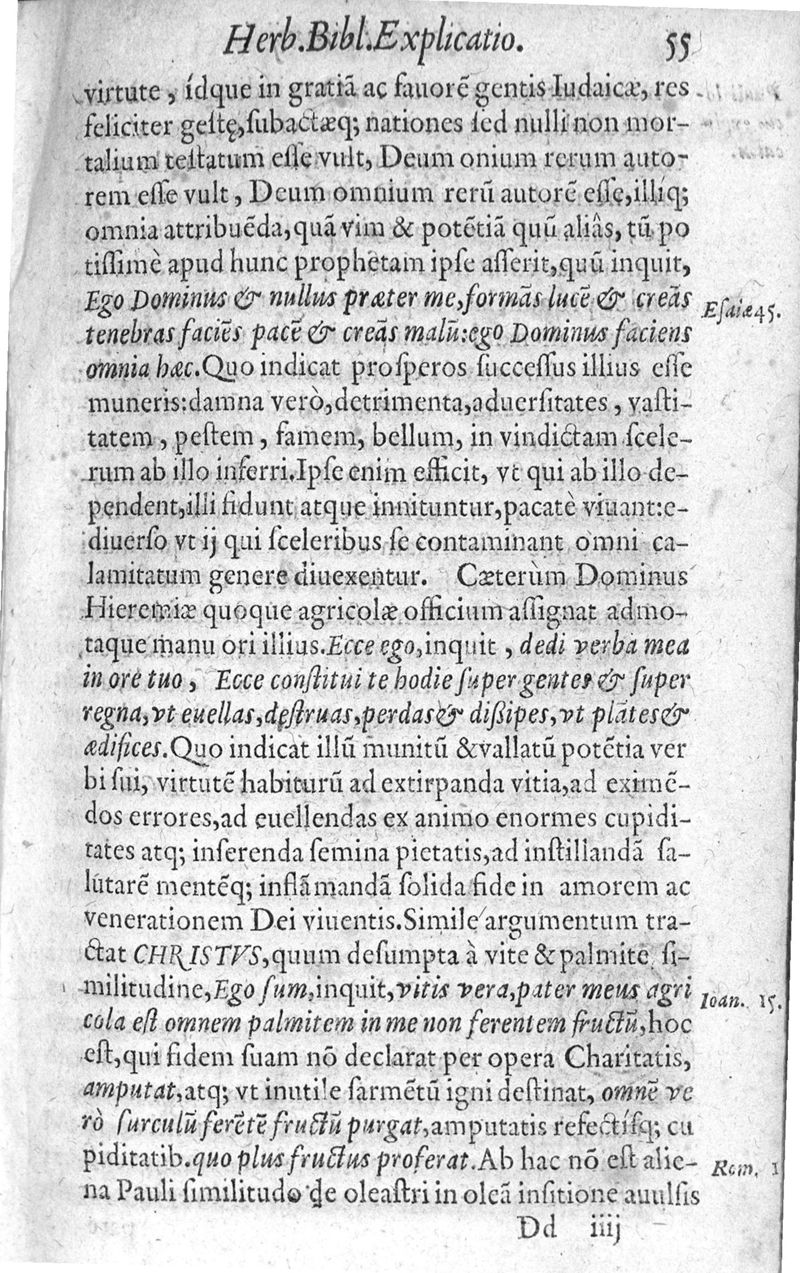 Herb.Bibl.Explicatio. 55
virtute, ídque in gratiã ac fauorẽ gentis Iudaicæ, res
feliciter gestę,subactæq; nationes sed nulli non mor-
talium testatum esse vult, Deum onium rerum auto-
rem esse vult, Deum omnium rerũ autorẽ esse,illíq;
omnia attribuẽda,quã vim & potẽtiã quũ aliâs, tũ po
tissimè apud hunc prophetam ipse asserit,quũ inquit,
Ego Dominus & nullus præter me,formãs lucẽ & creãs
Esaiæ 45.
tenebras faciẽs pacẽ & creãs malũ:ego Dominus faciens
omnia hæc.Quo indicat prosperos successus illius esse
muneris:damna verò,detrimenta,aduersitates, vasti-
tatem, pestem, famem, bellum, in vindictam scele-
rum ab illo inferri.Ipse enim efficit, vt qui ab illo de-
pendent,illi fidunt atque innituntur,pacatè viuant:e-
diuerso vt ij qui sceleribus se contaminant omni ca-
lamitatum genere diuexentur. Cæterùm Dominus
Hieremiæ quoque agricolæ officium assignat admo-
taque manu ori illius.Ecce ego,inquit, dedi verba mea
in ore tuo, Ecce constitui te hodie super gentes & super
regna,vt euellas,destruas,perdas & dissipes,vt plãtes &
ædifices.Quo indicat illũ munitũ & vallatũ potẽtia ver
bi sui, virtutẽ habiturũ ad extirpanda vitia,ad eximẽ-
dos errores,ad euellendas ex animo enormes cupidi-
tates atq; inserenda semina pietatis,ad instillandã sa-
lutarẽ mentẽq; inflãmandã solida fide in amorem ac
venerationem Dei viuentis.Simile argumentum tra-
ctat CHRISTVS,quum desumpta à vite & palmite si-
militudine,Ego sum,inquit,vitis vera,pater meus agri
Ioan. 15.
cola est omnem palmitem in me non ferentem fructũ,hoc
est,qui fidem suam nõ declarat per opera Charitatis,
amputat,atq; vt inutile sarmẽtũ igni destinat, omnẽ ve
rò surculũ ferẽtẽ fructũ purgat,amputatis refectísq; cu
piditatib.quo plus fructus proferat.Ab hac nõ est alie-
Rom. 1
na Pauli similitudo de oleastri in oleã insitione auulsis
Dd iiij